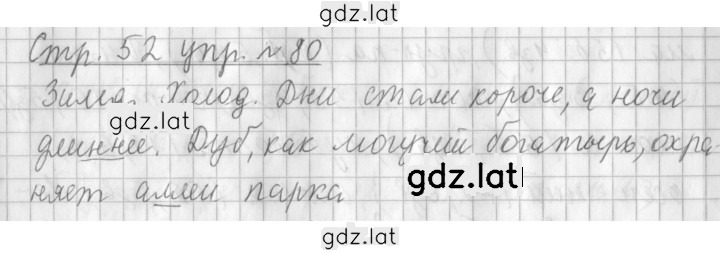 gdz.lat
Стр. 52 упр. № 80
Зима. Холод. Дни стали короче, а ночи
gdz.lat
длиннее. Дуб, как могучий богатырь, охра-
gdz.lat
няет аллеи парка
gdz.lat